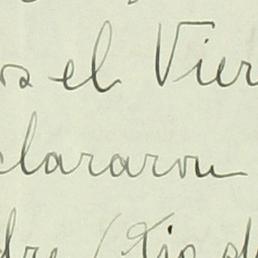 os el Vier
clararon
dre (Tio d